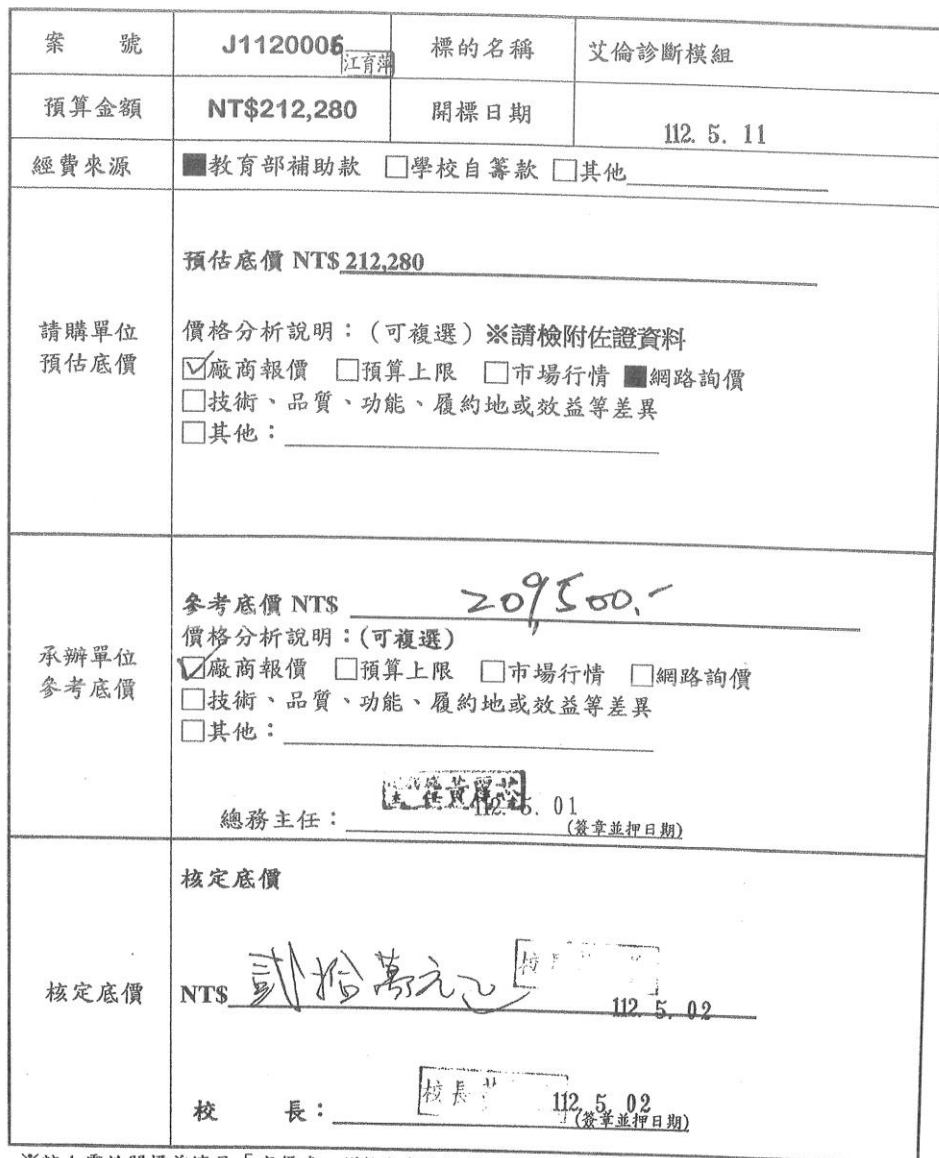 案 號 J1120005 標的名稱 艾倫診斷模組
江育萍
預算金額 NT$212,280 開標日期 112. 5. 11
經費來源 ■教育部補助款 □學校自籌款 □其他
預估底價 NT$ 212,280
請購單位
預估底價
價格分析說明：（可複選）※請檢附佐證資料
☑廠商報價 □預算上限 □市場行情 ■網路詢價
□技術、品質、功能、履約地或效益等差異
□其他：
參考底價 NT$ 209,500.-
承辦單位
參考底價
價格分析說明：(可複選)
☑廠商報價 □預算上限 □市場行情 □網路詢價
□技術、品質、功能、履約地或效益等差異
□其他：
總務主任： 112. 5. 01
(簽章並押日期)
核定底價
核定底價 NT$ 貳拾萬元 校長 112. 5. 02
校 長： 校長 112. 5. 02
(簽章並押日期)